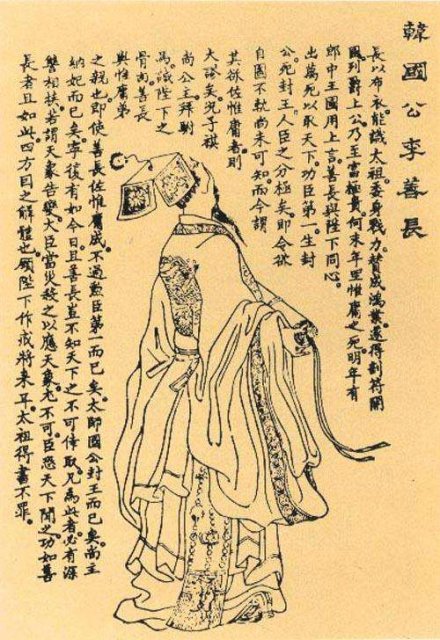 韓國公李善長
長以布衣能識太祖。委身戮力。贊成鴻業。遂得剖符開
國列爵上公乃至富極貴。何末年里惟庸之死明年有
郎中王國用上言。善長與陛下同心。
出萬死以取天下。功臣第一。生封
公。死封王。人臣之分極矣。即令欲
自圖不軌。尚未可知。而今謂
其欲佐惟庸者。則
大謬矣。況子祺
尚公主拜駙
馬。誠陛下之
骨肉。善長
與惟庸第
之親也。即使善長佐惟庸成。不過勲臣第一而已矣。太師國公封王而已矣。尚主
納妃而已矣。寧後有加今日。且善長豈不知天下之不可倖取。見為此者必有深
讐相扶者。謂天象告變。大臣當災。殺之以應天象。尤不可。臣恐天下聞之。功如善
長者且如此。四方因之解體也。願陛下作戒將來耳。太祖得書不罪。